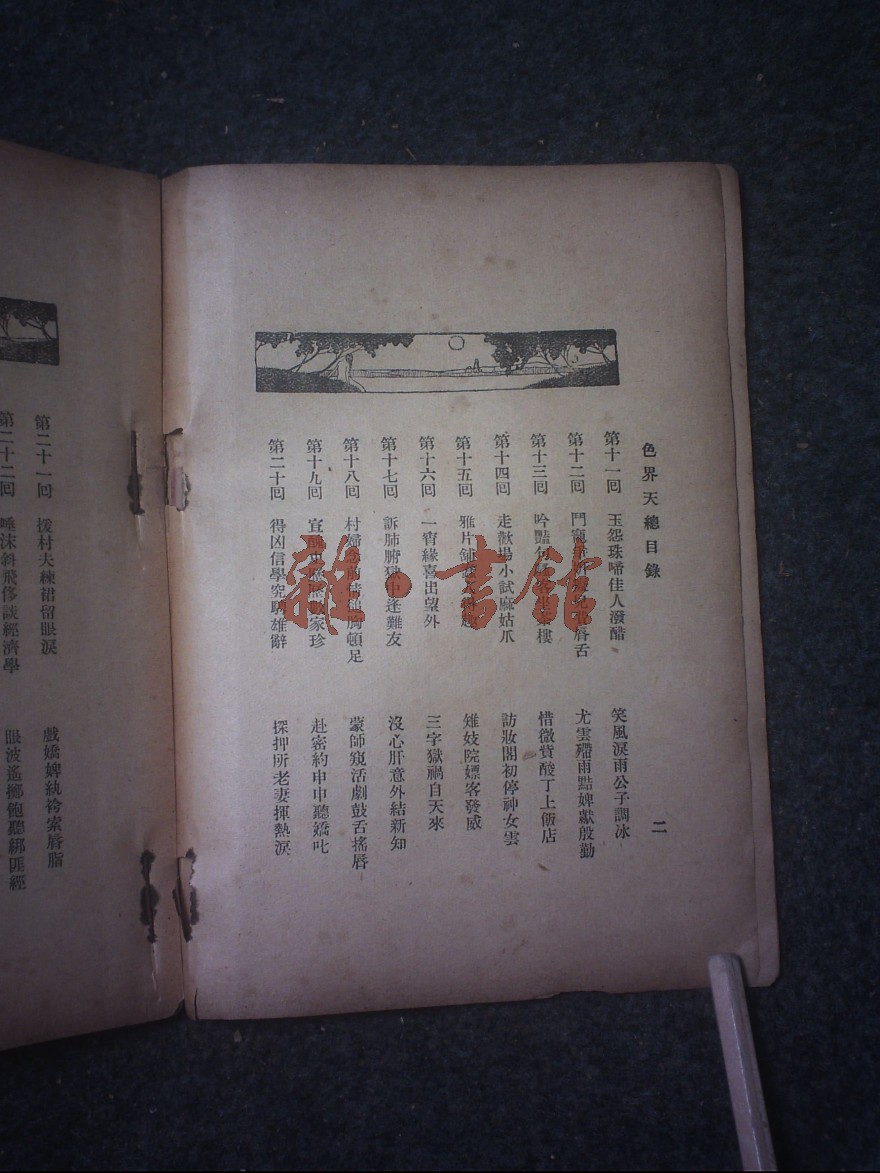 色界天總目錄
二
第十一囘 玉怨珠啼佳人潑醋 笑風淚雨公子調冰
第十二囘 鬥寵 唇舌 尤雲殢雨點婢獻殷勤
第十三囘 吟豔句 樓 惜微貲酸丁上飯店
第十四囘 走歡場小試麻姑爪 訪妝閣初停神女雲
第十五囘 雅片鋪 雉妓院嫖客發威
第十六囘 一宵緣喜出望外 三字獄禍自天來
第十七囘 訴肺腑獄中逢難友 沒心肝意外結新知
第十八囘 村婦 胸頓足 蒙師窺活劇鼓舌搖唇
第十九囘 宣 家珍 赴密約申申聽嬌叱
第二十囘 得凶信學究 雄辭 探押所老妻揮熱淚
第二十一囘 援村夫練裙留眼淚 戲嬌婢紈袴索唇脂
第二十二囘 唾沫斜飛侈談經濟學 眼波遙擲他聽綁匪經
雜·書館